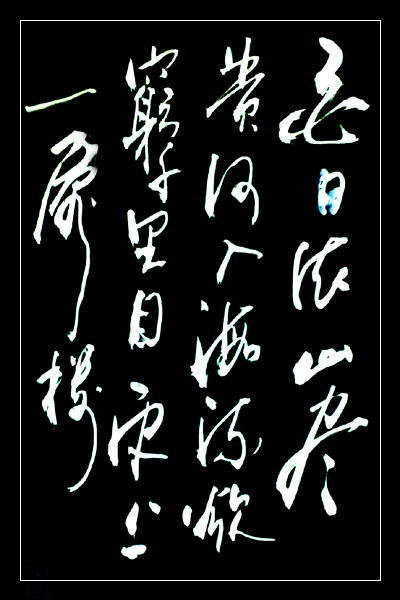 白日依山尽
黄河入海流欲
窮千里目更上
一層楼